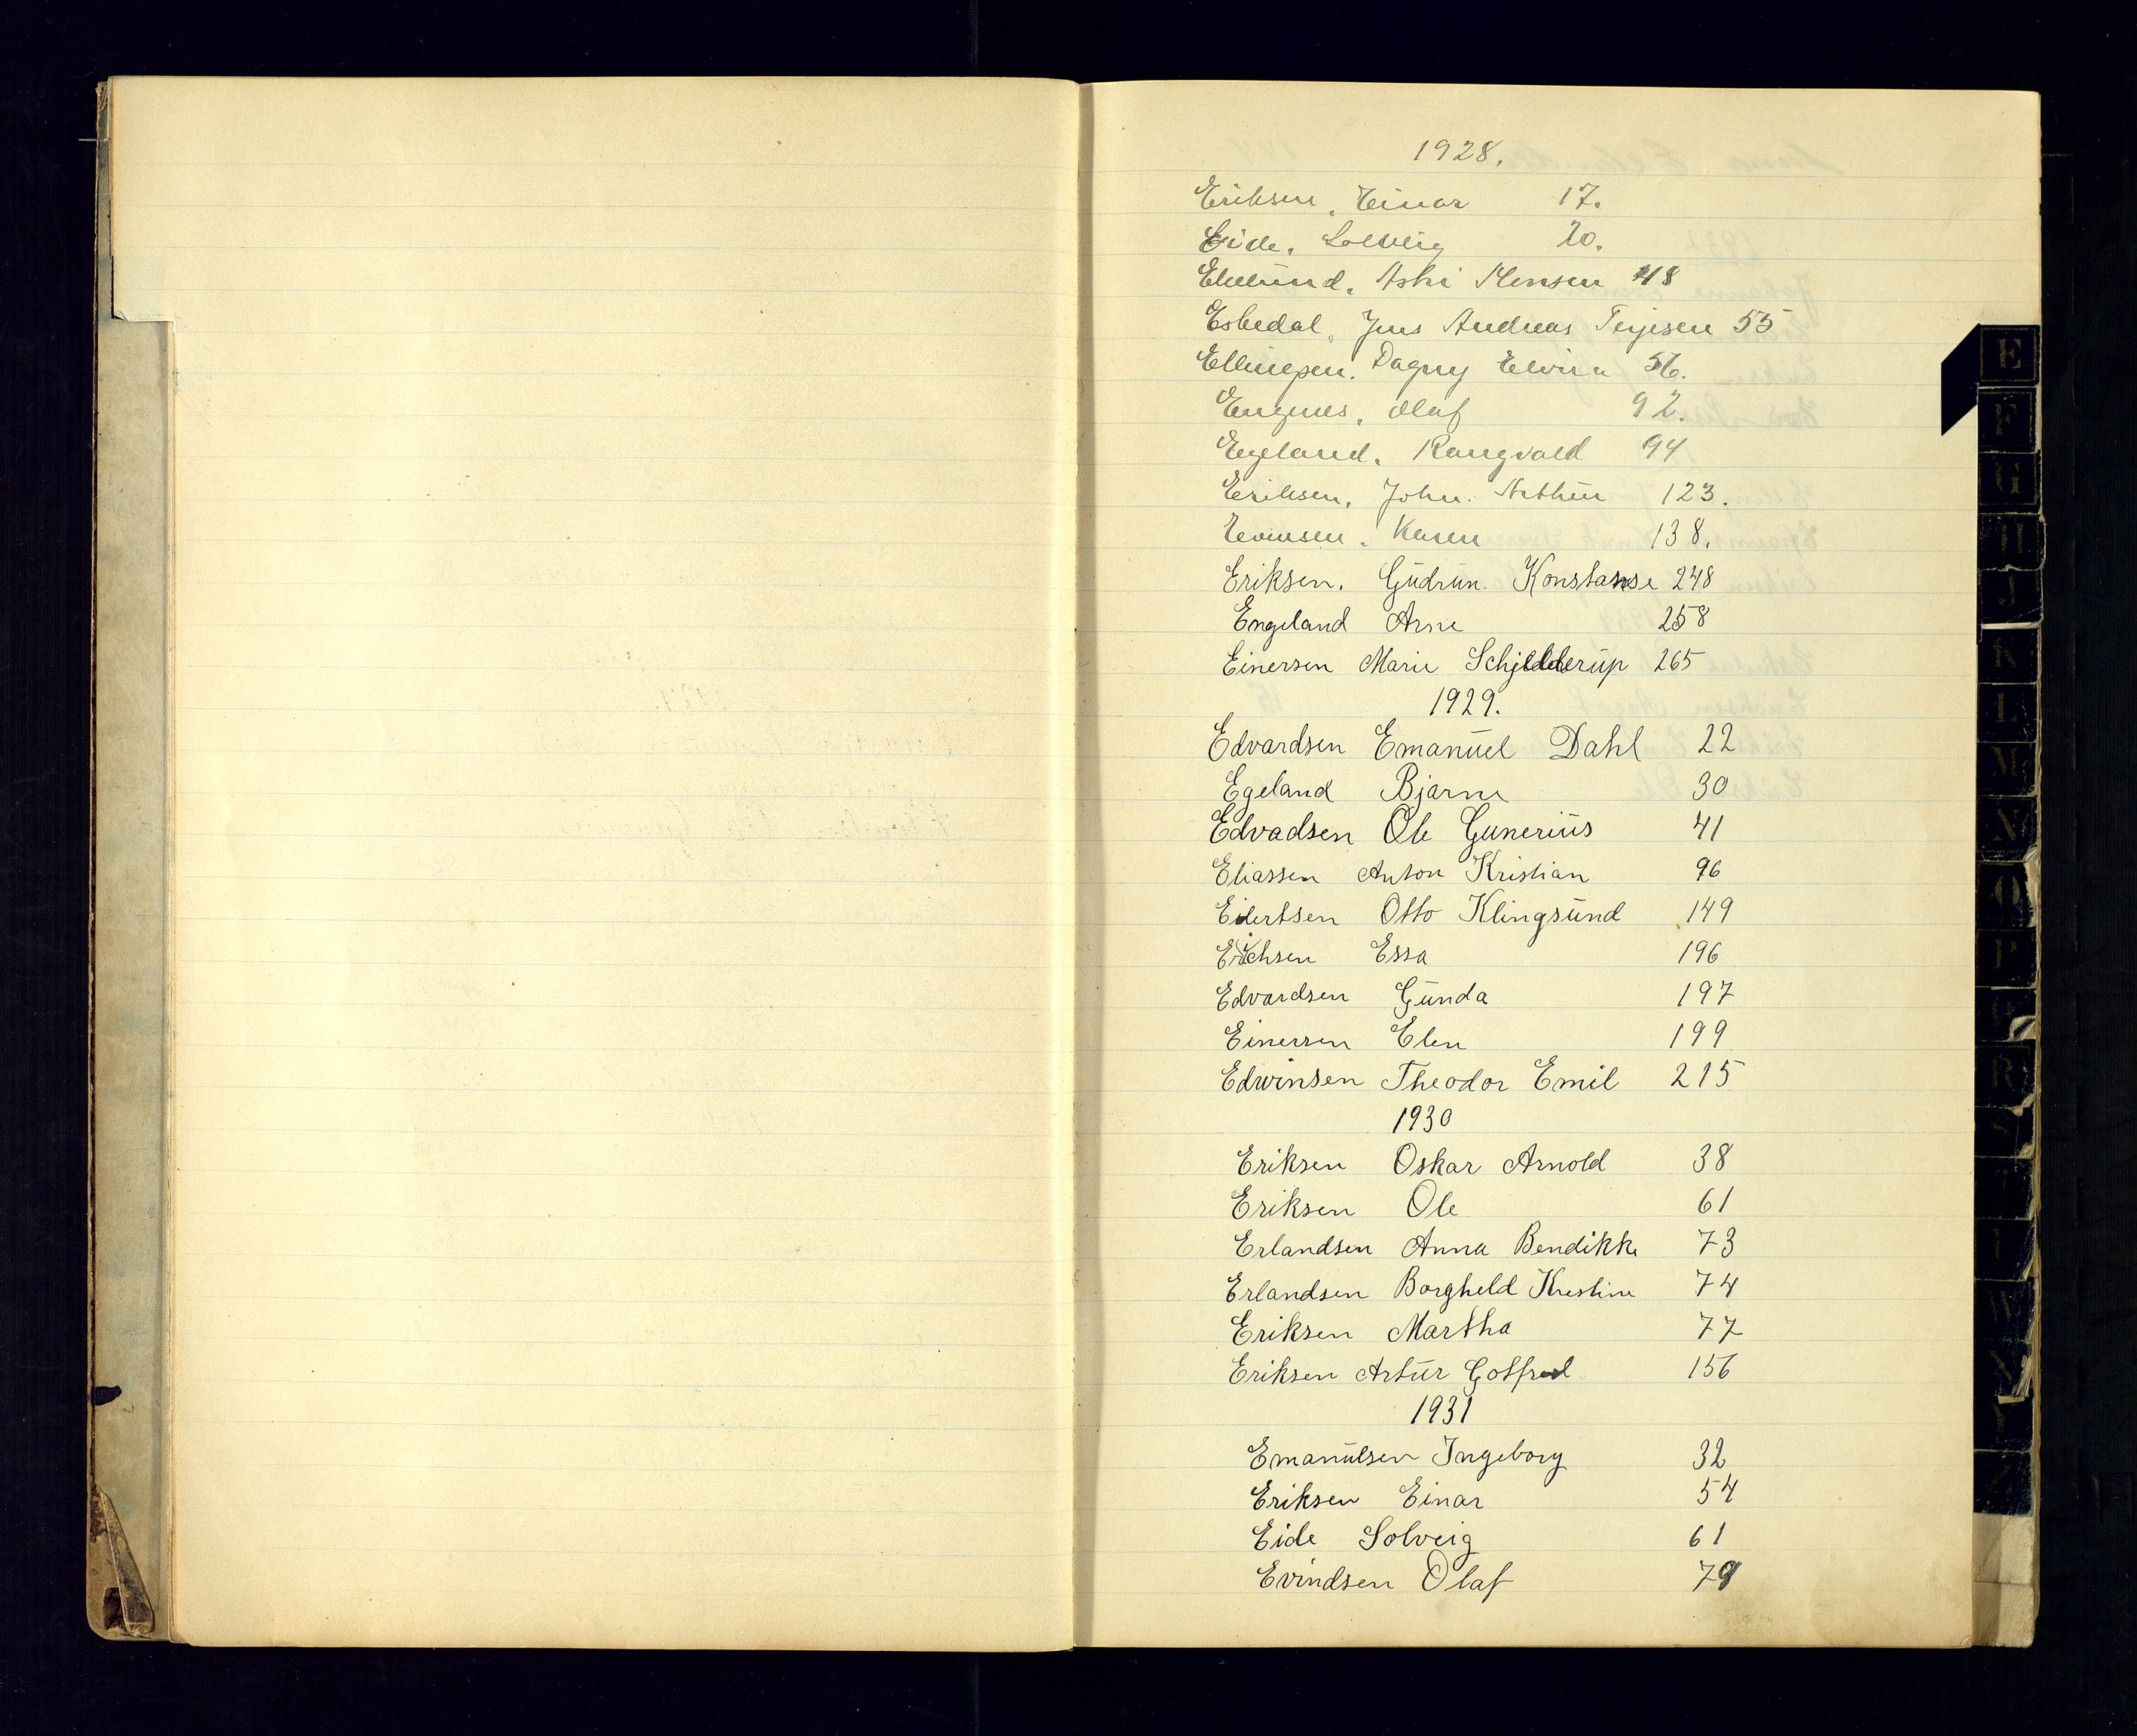 1928.
Eriksen, Einar 17.
Eide, Solveig 20.
Eklund, Aslri Monsen 48
Eskedal, Jens Andreas Terjesen 55
Ellingsen, Dagny Elvira 56.
Engnes, Olaf 92.
Egeland, Rangvald 94
Eriksen, John. Arthur 123.
Evensen, Karen 138.
Eriksen, Gudrun. Konstanse 248
Engeland Arne 258
Einersen Marie Schjelderup 265
1929.
Edvardsen Emanuel Dahl 22
Egeland Bjarne 30
Edvadsen Ole Gunerius 41
Eliassen Anton Kristian 96
Eilertsen Otto Klingsund 149
Erichsen Essa 196
Edvardsen Gunda 197
Einersen Elen 199
Edwinsen Theodor Emil 215
1930
Eriksen Oskar Arnold 38
Eriksen Ole 61
Erlandsen Anna Bendikke 73
Erlandsen Borgheld Kristine 74
Eriksen Martha 77
Eriksen Artur Gotfred 156
1931
Emanulsen Ingeborg 32
Eriksen Einar 54
Eide Solveig 61
Evindsen Olaf 79
E
F
G
H
J
K
L
M
N
O
P
R